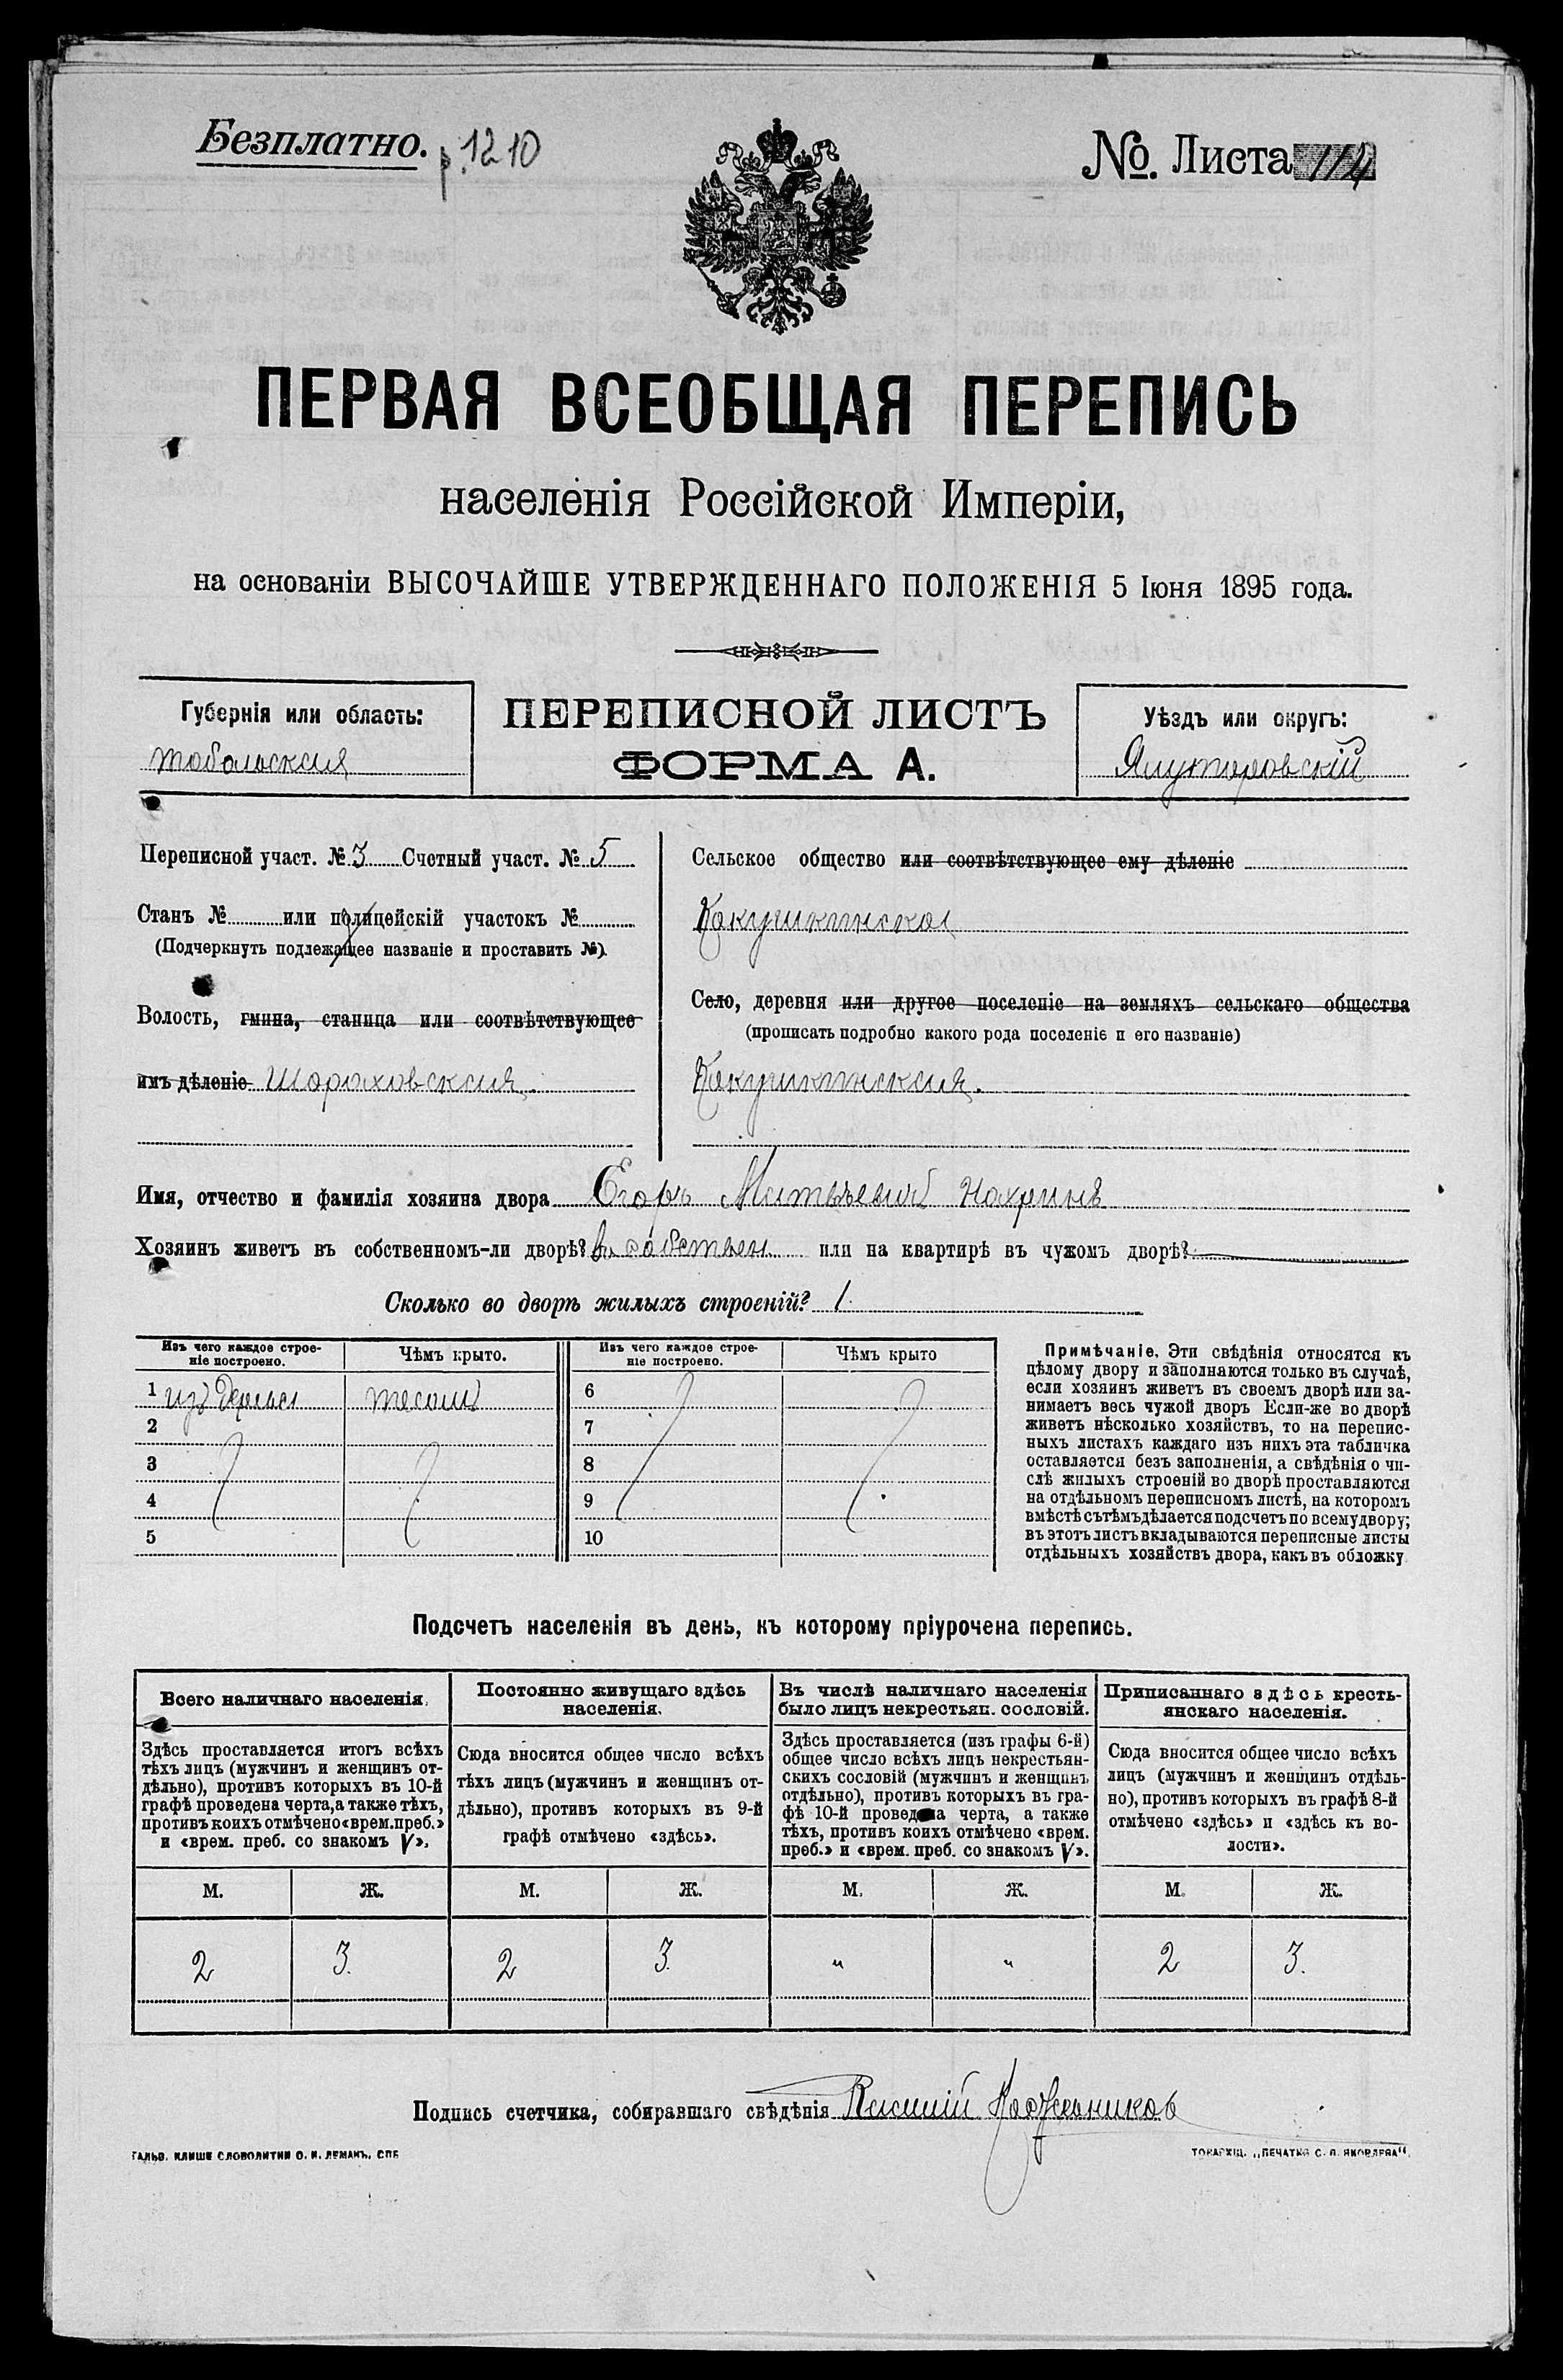 Безплатно. р. 1210
№. Листа 114
ПЕРВАЯ ВСЕОБЩАЯ ПЕРЕПИСЬ
населенія Россійской Имперіи,
на основаніи ВЫСОЧАЙШЕ УТВЕРЖДЕННАГО ПОЛОЖЕНІЯ 5 Іюня 1895 года.
Губернія или область:
тобольская
ПЕРЕПИСНОЙ ЛИСТЪ
ФОРМА А.
Уѣздъ или округъ:
Ялуторовскій
Переписной участ. № 3 Счетный участ. № 5
Станъ № или полицейскій участокъ №
(Подчеркнуть подлежащее названіе и проставить №).
Волость, гмина, станица или соотвѣтствующее
имъ дѣленіе Шороховская
Сельское общество или соотвѣтствующее ему дѣленіе
Кокушкинское
Село, деревня или другое поселеніе на земляхъ сельскаго общества
(прописать подробно какого рода поселеніе и его названіе)
Кокушкинская.
Имя, отчество и фамилія хозяина двора Егоръ Матвѣевичъ Нохринъ
Хозяинъ живетъ въ собственномъ-ли дворѣ? въ собствен или на квартирѣ въ чужомъ дворѣ?
Сколько во дворѣ жилыхъ строеній? 1.
Изъ чего каждое строе-
ніе построено.
Чѣмъ крыто.
Изъ чего каждое строе-
ніе построено.
Чѣмъ крыто
1 изъ дерева тесомъ 6
2 7
3 8
4 9
5 10
Примѣчаніе. Эти свѣдѣнія относятся къ
цѣлому двору и заполняются только въ случаѣ,
если хозяинъ живетъ въ своемъ дворѣ или за-
нимаетъ весь чужой дворъ Если-же во дворѣ
живетъ нѣсколько хозяйствъ, то на перепис-
ныхъ листахъ каждаго изъ нихъ эта табличка
оставляется безъ заполненія, а свѣдѣнія о чи-
слѣ жилыхъ строеній во дворѣ проставляются
на отдѣльномъ переписномъ листѣ, на которомъ
вмѣстѣ съ тѣмъ дѣлается подсчетъ по всему двору;
въ этотъ листъ вкладываются переписные листы
отдѣльныхъ хозяйствъ двора, какъ въ обложку
Подсчетъ населенія въ день, къ которому пріурочена перепись.
Всего наличнаго населенія.
Здѣсь проставляется итогъ всѣхъ
тѣхъ лицъ (мужчинъ и женщинъ от-
дѣльно), противъ которыхъ въ 10-й
графѣ проведена черта, а также тѣхъ,
противъ коихъ отмѣчено «врем. преб.»
и «врем. преб. со знакомъ V».
Постоянно живущаго здѣсь
населенія.
Сюда вносится общее число всѣхъ
тѣхъ лицъ (мужчинъ и женщинъ от-
дѣльно), противъ которыхъ въ 9-й
графѣ отмѣчено «здѣсь».
Въ числѣ наличнаго населенія
было лицъ некрестьян. сословій.
Здѣсь проставляется (изъ графы 6-й)
общее число всѣхъ лицъ некрестьян-
скихъ сословій (мужчинъ и женщинъ
отдѣльно), противъ которыхъ въ гра-
фѣ 10-й проведена черта, а также
тѣхъ, противъ коихъ отмѣчено «врем.
преб.» и «врем. преб. со знакомъ V».
Приписаннаго здѣсь кресть-
янскаго населенія.
Сюда вносится общее число всѣхъ
лицъ (мужчинъ и женщинъ отдѣль-
но), противъ которыхъ въ графѣ 8-й
отмѣчено «здѣсь» и «здѣсь къ во-
лости».
М. Ж. М. Ж. М. Ж. М. Ж.
2 3. 2 3. " " 2 3.
Подпись счетчика, собиравшаго свѣдѣнія
ГАЛЬВ. КЛИШЕ СЛОВОЛИТНИ О. И. ЛЕМАНЪ, СПБ
ТОВАРИЩ. „ПЕЧАТНЯ С. П. ЯКОВЛЕВА".